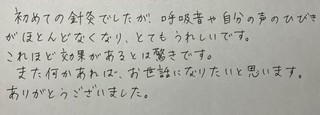 初めての針灸でしたが、呼吸音や自分の声のひびき
がほとんどなくなり、とてもうれしいです。
これほど効果があるとは驚きです。
また何かあれば、お世話になりたいと思います。
ありがとうございました。